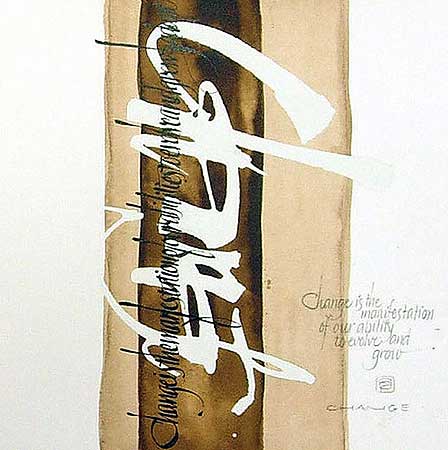 Change is the manifestation of our ability to evolve and
Change is the
manifestation
of our ability
to evolve and
grow
CHANGE